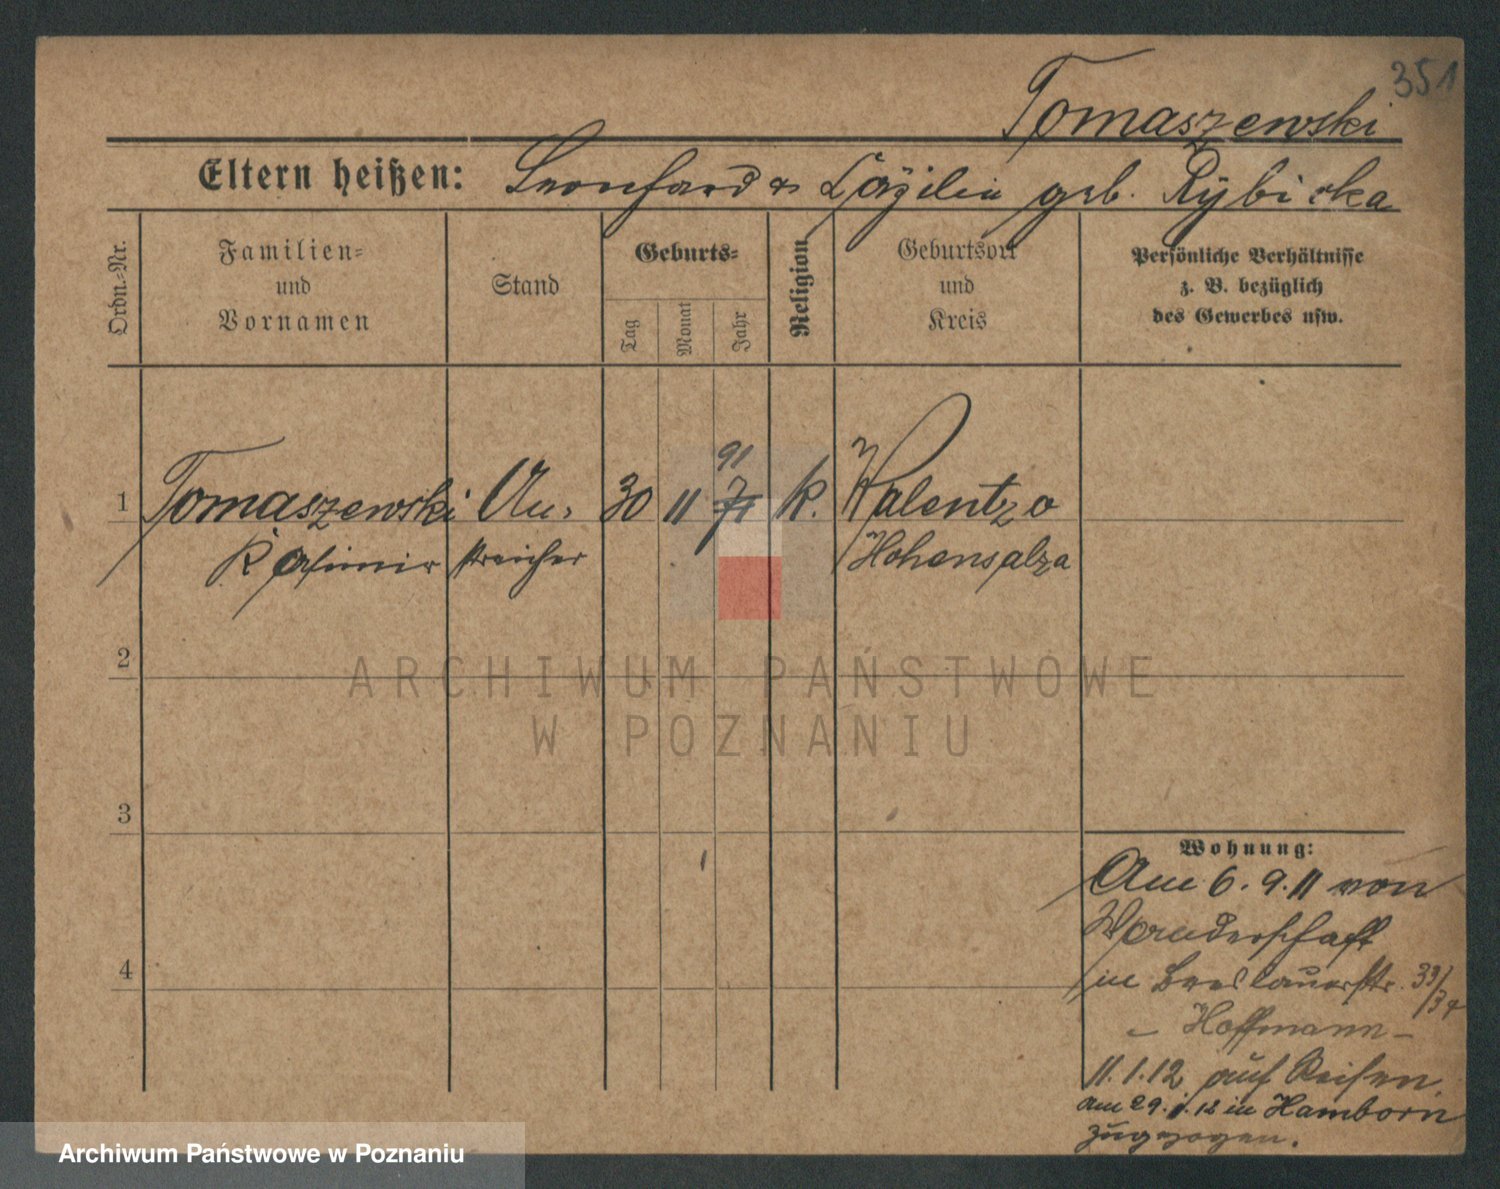 351
Tomaszewski
Eltern heißen: Leonhard u Cäzilie geb. Rybicka
Ordn.-Nr.
Familien-
und
Vornamen
Stand
Geburts-
Tag
Monat
Jahr
Religion
Geburtsort
und
Kreis
Persönliche Verhältnisse
z. B. bezüglich
des Gewerbes usw.
91
1 Tomaszewski An- 30 11 71 k. Walentzo
Kasimir streicher Hohensalza
2
3
4
Wohnung:
Am 6.9.11 von
Wanderschaft
in Breslauerstr. 33/34
- Hoffmann -
11.1.12 auf Reisen.
am 29.1.12 in Hamborn
zugezogen.
ARCHIWUM PAŃSTWOWE
W POZNANIU
Archiwum Państwowe w Poznaniu